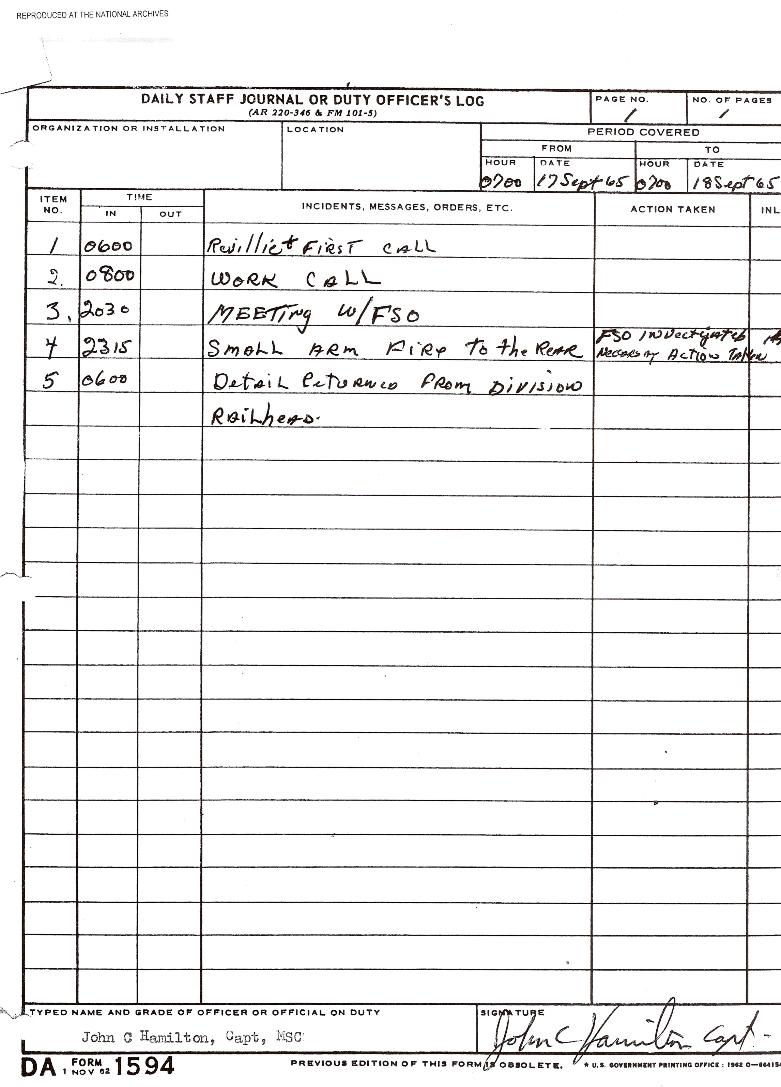 REPRODUCED AT THE NATIONAL ARCHIVES
DAILY STAFF JOURNAL OR DUTY OFFICER'S LOG
(AR 220-346 & FM 101-5)
PAGE NO.
1
NO. OF PAGES
1
ORGANIZATION OR INSTALLATION
LOCATION
PERIOD COVERED
FROM
TO
HOUR DATE HOUR DATE
0700 17 Sept 65 0700 18 Sept 65
ITEM NO.
TIME
IN OUT
INCIDENTS, MESSAGES, ORDERS, ETC.
ACTION TAKEN
INL
1 0600 First CALL
2. 0800 WORK CALL
3. 2030 MEETING W/FSO
4 2315 SMALL ARM FIRE to the REAR
FSO
Action Taken
5 0600 Detail Returned From Division
Railhead.
TYPED NAME AND GRADE OF OFFICER OR OFFICIAL ON DUTY
John C Hamilton, Capt, MSC
SIGNATURE
John C Hamilton Capt-
DA FORM 1 NOV 62 1594
PREVIOUS EDITION OF THIS FORM IS OBSOLETE.
* U.S. GOVERNMENT PRINTING OFFICE : 1962 O-